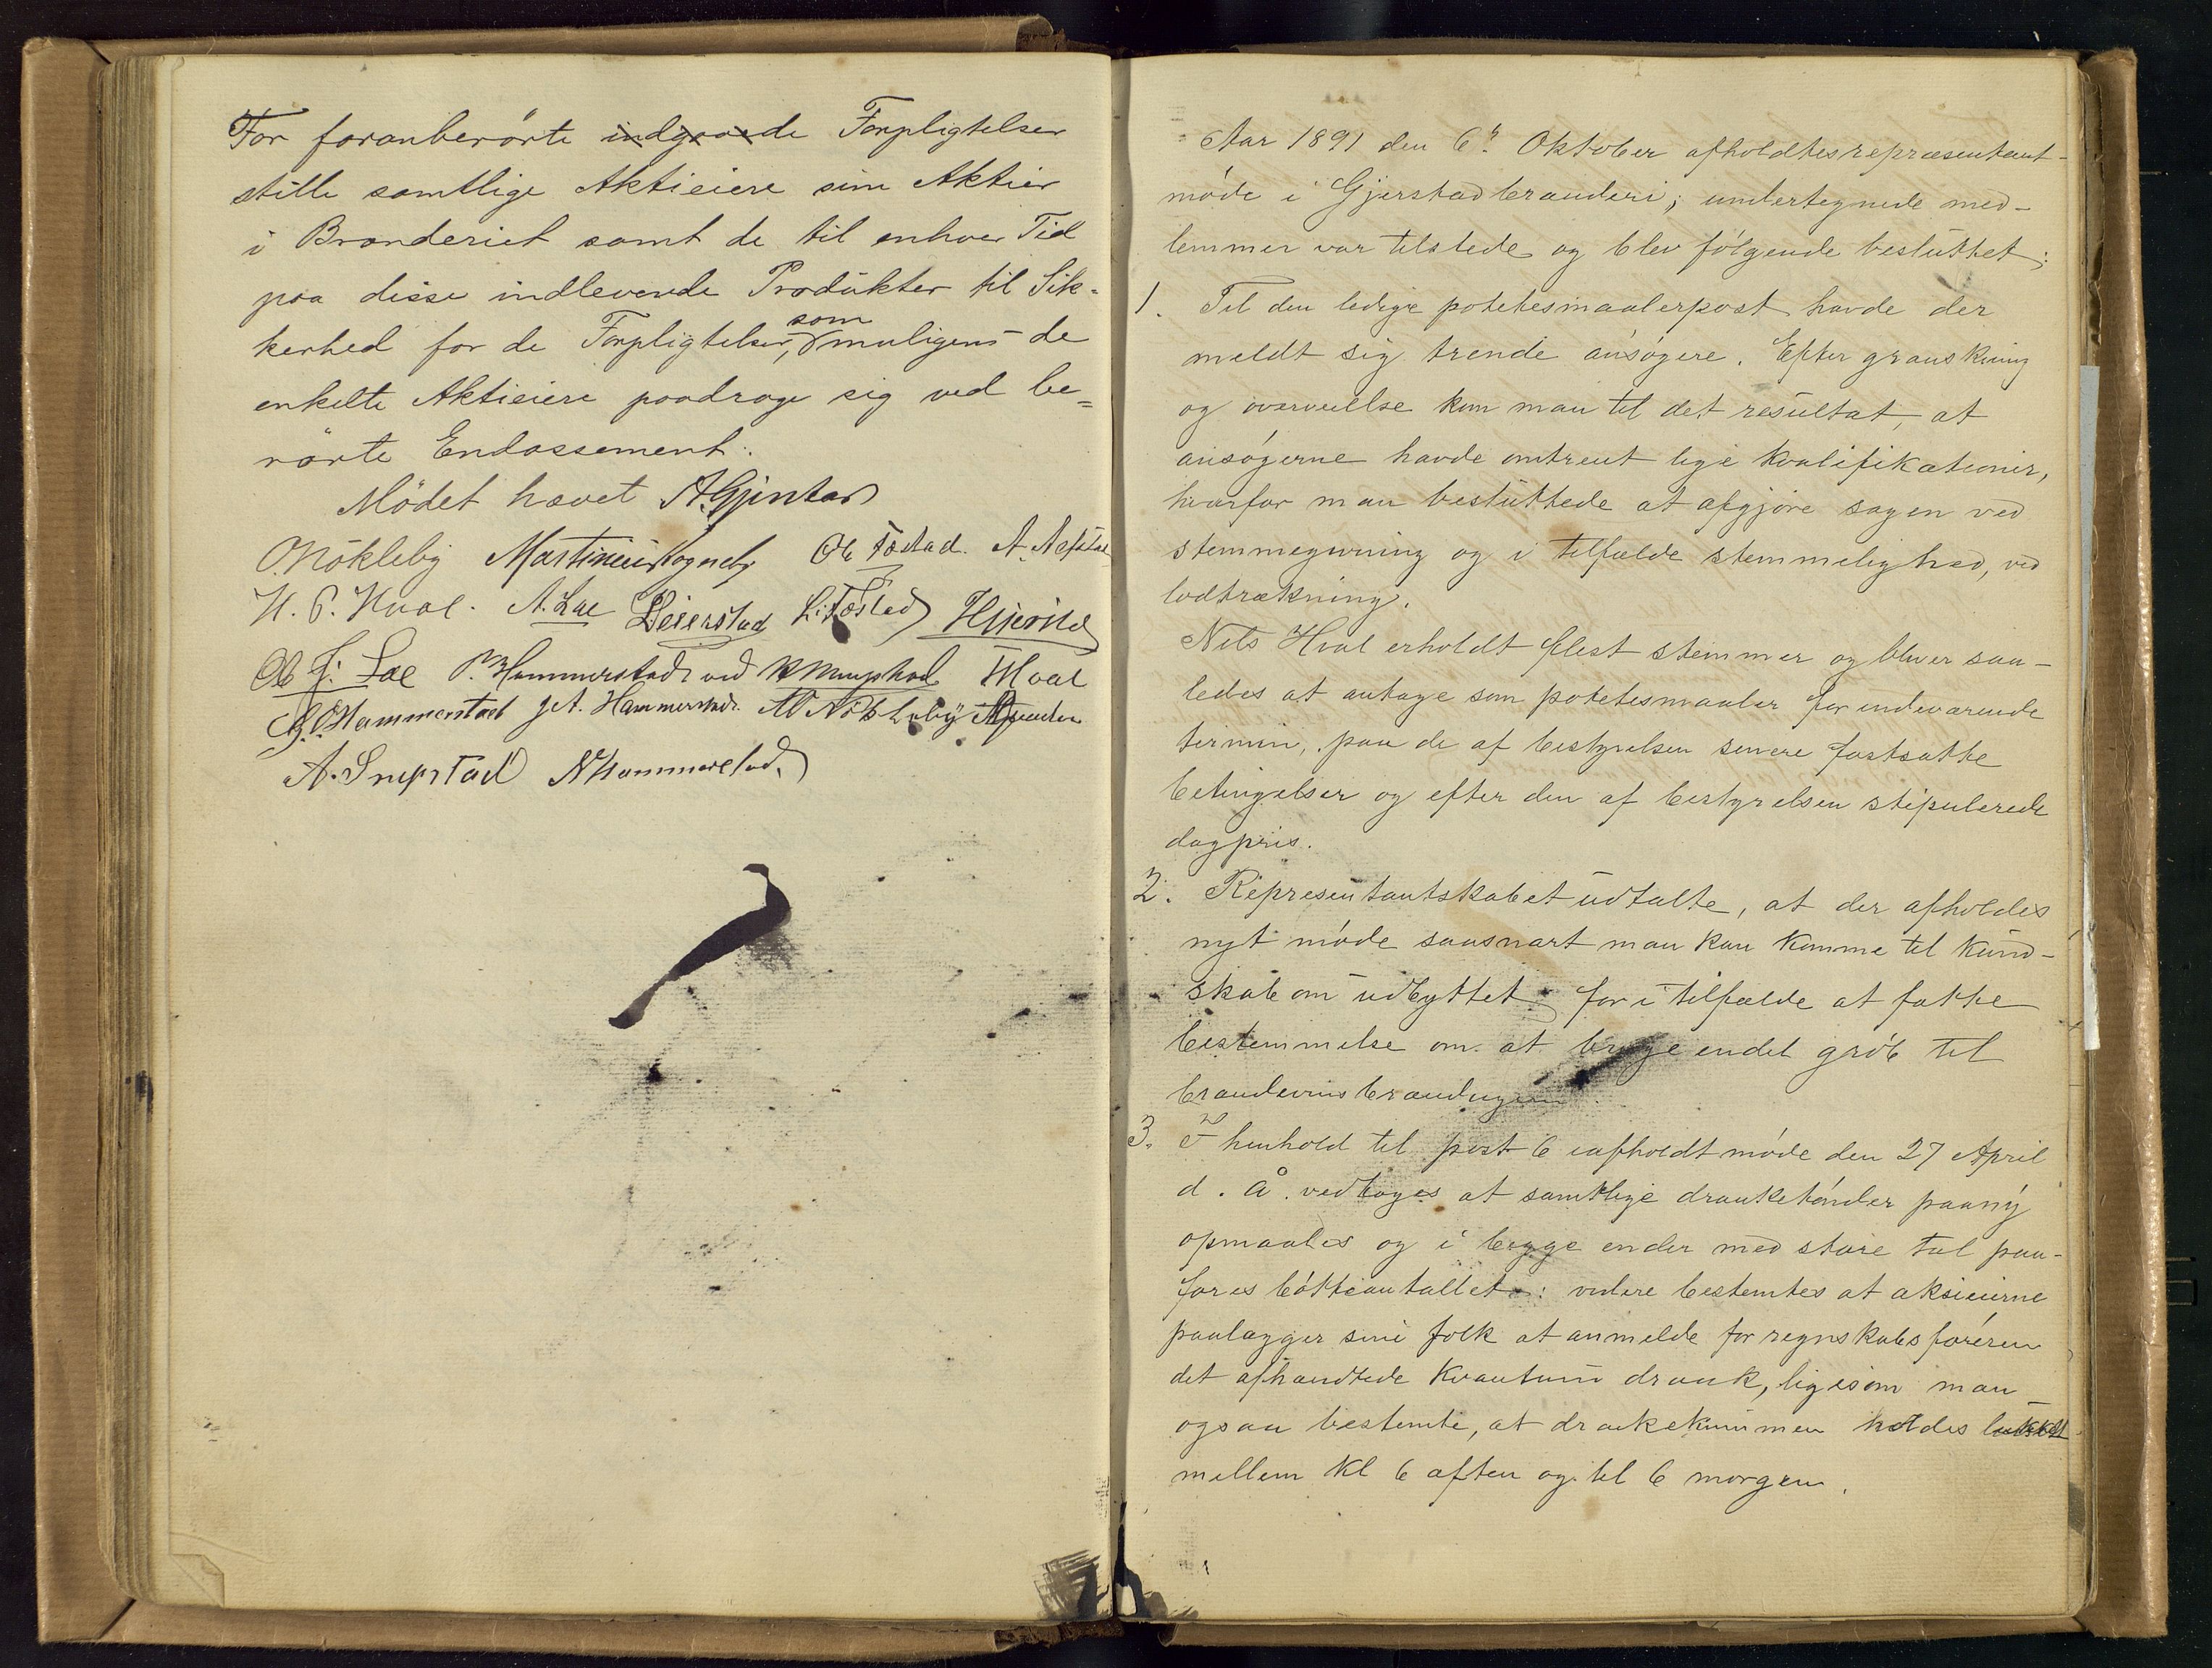 For foranberørte indgaaede Forpligtelser
stille samtlige Aktieiere sine Aktier
i Brænderiet samt de til enhver Tid
paa disse indleverede Produkter til Sik-
kerhed for de Forpligtelser, som muligens de
enkelte Aktieiere paadrage sig ved be-
rørte Endossement.
Mødet hævet A. Gjerstad
O. Nökleby Martinius Rogneby Ole Tostad. A.
H. P. Hval. A. Lae Deierstad L. Tøstad
Ole J. Lae P. Hammerstad ved Hval
Hammerstad Joh. Hammerstad. Nökleby
A. N Hammerstad
Aar 1891 den 6te Oktober afholdtes repræsentant-
møde i Gjerstad brænderi; undertegnede med-
lemmer var tilstede og blev følgende besluttet;
1. Til den ledige potetesmaalerpost havde der
meldt sig trende ansøgere. Efter granskning
og overveielse kom man til det resultat, at
ansøgerne havde omtrent lige kvalifikationer,
hvorfor man besluttede at afgjøre sagen ved
stemmegivning og i tilfælde stemmelighed, ved
lodtrækning.
Nils Hval erholdt flest stemmer og bliver saa-
ledes at antage som potetesmaaler for indeværende
termin, paa de af bestyrelsen senere fastsatte
betingelser og efter den af bestyrelsen stipulerede
dagpris.
2. Representantskabet udtalte, at der afholdes
nyt møde saasnart man kan komme til kund-
skab om udbyttet for i tilfælde at fatte
bestemmelse om at bruge endel grøb til
brændevinsbrændingen.
3. I henhold til post 6 i afholdt møde den 27 April
d. å. vedtoges at samtlige dranketønder paany
opmaales og i begge ender med store tal paa-
føres bøtteantallet: videre bestemtes at aksieierne
paalægger sine folk at anmelde for regnskabsføreren
det afhændtede kvantum drank, ligesom man
ogsaa bestemte, at drankekummen holdes lukket
mellem Kl 6 aften og til 6 morgen.